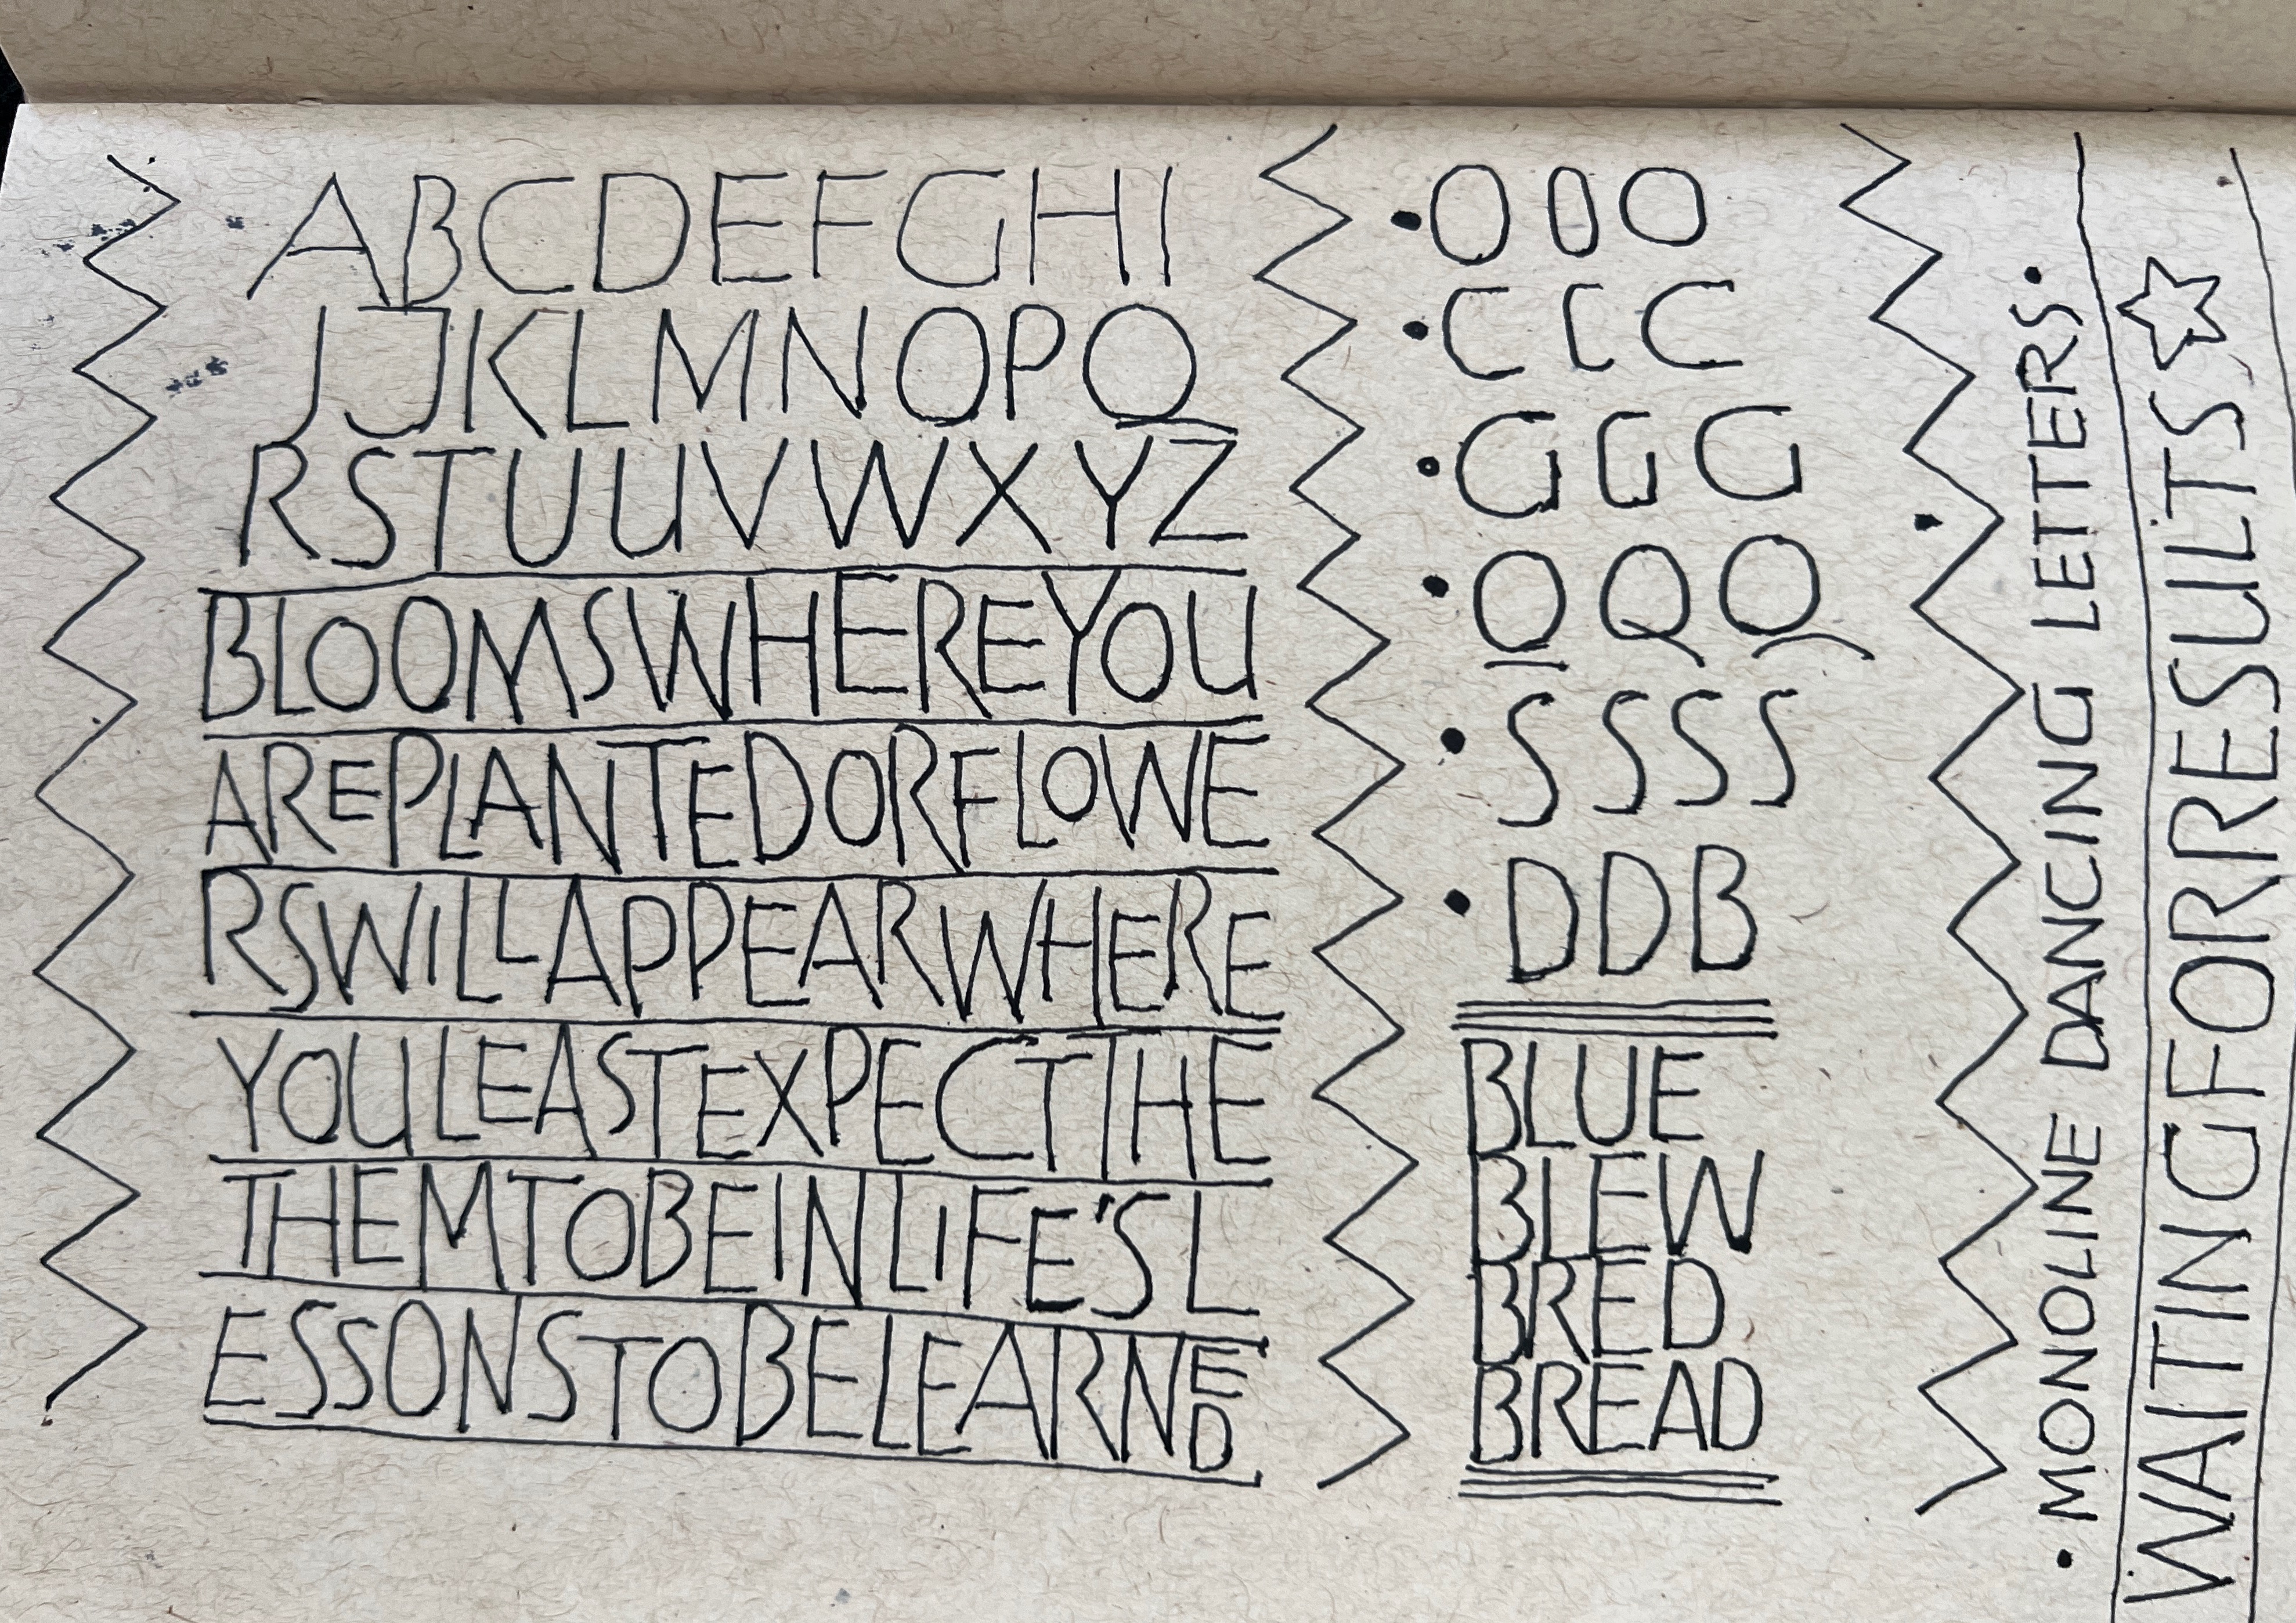 ABCDEFGHI
JJKLMNOPQ
RSTUUVWXYZ
BLOOMSWHEREYOU
AREPLANTEDORFLOWE
RSWiLLAPPEARWHERE
YOULEASTEXPECTTHE
THEMTOBEINLiFE'SL
ESSONSTOBELEARNED
•OOO
•CCC
•GGG
•QQQ
•SSSS
•DDB
BLUE
BLEW
BRED
BREAD
•MONOLINE DANCING LETTERS•
WAITINGFORRESULTS☆